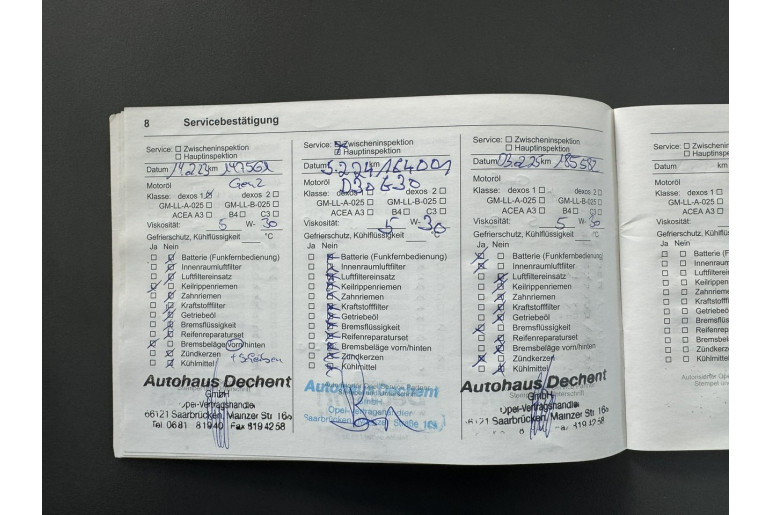 8 Servicebestätigung
Service: ☐ Zwischeninspektion
☐ Hauptinspektion
Datum 14.2.23 km 147562
Motoröl Gen2
Klasse: dexos 1 ☒ dexos 2 ☐
GM-LL-A-025 ☐ GM-LL-B-025 ☐
ACEA A3 ☐ B4 ☐ C3 ☐
Viskosität: 5 W- 30
Gefrierschutz, Kühlflüssigkeit °C
Ja Nein
Batterie (Funkfernbedienung)
Innenraumluftfilter
Luftfiltereinsatz
Keilrippenriemen
Zahnriemen
Kraftstofffilter
Getriebeöl
Bremsflüssigkeit
Reifenreparaturset
Bremsbeläge vorn/hinten
Zündkerzen + Scheiben
Kühlmittel
Autohaus Dechent
GmbH
Opel-Vertragshändler
66121 Saarbrücken, Mainzer Str 16
Tel 0681 81940 Fax 8194258
Service: Zwischeninspektion
☐ Hauptinspektion
Datum 5.2.24 km 164001
Motoröl D30
Klasse: dexos 1 ☐ dexos 2 ☐
GM-LL-A-025 ☐ GM-LL-B-025 ☐
ACEA A3 ☐ B4 ☐ C3 ☐
Viskosität: 5 W- 30
Gefrierschutz, Kühlflüssigkeit °C
Ja Nein
Batterie (Funkfernbedienung)
Innenraumluftfilter
Luftfiltereinsatz
Keilrippenriemen
Zahnriemen
Kraftstofffilter
Getriebeöl
Bremsflüssigkeit
Reifenreparaturset
Bremsbeläge vorn/hinten
Zündkerzen
Kühlmittel
Autohaus Dechent
GmbH
Opel-Vertragshändler
Saarbrücken, Mainzer Straße 168
Service: ☐ Zwischeninspektion
☐ Hauptinspektion
Datum 03.2.25 km 185582
Motoröl
Klasse: dexos 1 ☐ dexos 2 ☐
GM-LL-A-025 ☐ GM-LL-B-025 ☐
ACEA A3 ☐ B4 ☐ C3 ☐
Viskosität: 5 W- 30
Gefrierschutz, Kühlflüssigkeit °C
Ja Nein
Batterie (Funkfernbedienung)
Innenraumluftfilter
Luftfiltereinsatz
Keilrippenriemen
Zahnriemen
Kraftstofffilter
Getriebeöl
Bremsflüssigkeit
Reifenreparaturset
Bremsbeläge vorn/hinten
Zündkerzen
Kühlmittel
Autohaus Dechent
GmbH
Opel-Vertragshändler
Saarbrücken, Mainzer Str 16
8194258
Service: ☐ Zwis
☐ Hau
Datum km
Motoröl
Klasse: dexos 1 ☐
GM-LL-A-025 ☐
ACEA A3 ☐
Viskosität:
Gefrierschutz, Kühlflüs
Ja Nein
Batterie (F
Innenraum
Luftfilterein
Keilrippen
Zahnriem
Kraftstofff
Getriebeö
Bremsflüs
Reifenrepa
Bremsbelä
Zündkerz
Kühlmitte
Autorisierter Ope
Stempel un